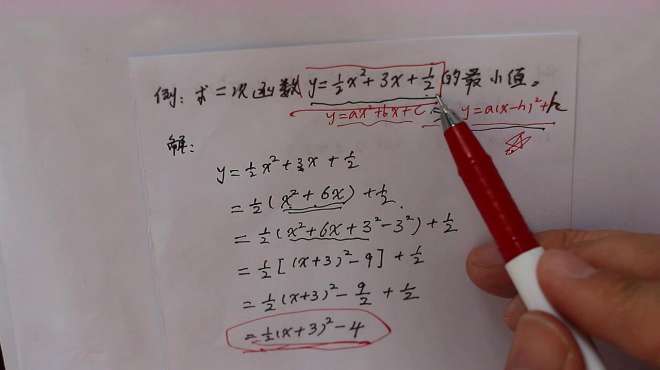 例: 求二次函数y=½x²+3x+½的最小值。
y=ax²+bx+c y=a(x-h)²+k
解:
y=½x²+3x+½
=½(x²+6x)+½.
=½(x²+6x+3²-3²)+½
=½[(x+3)²-9]+½
=½(x+3)²-9/2+½
=½(x+3)²-4